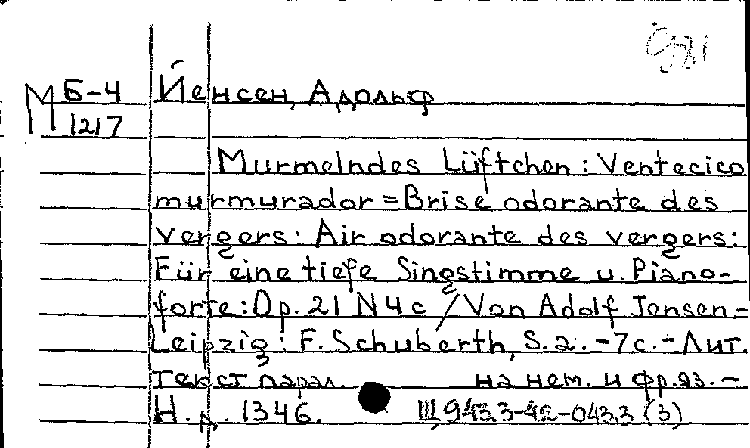 981
М Б-4 Йенсен, Адольф
1217
Murmelndes Lüftchen : Ventecico
murmurador = Brise odorante des
vergers : Air odorante des vergers :
Für eine tiefe Singstimme u. Piano-
forte : Op. 21 N 4c / Von Adolf Jensen -
Leipzig : F. Schuberth, S. a. - 7 с. - Лит.
Текст парал. на нем. и фр. яз. -
Н. д. 1346. Ш 943.3-42-043.3 (3)